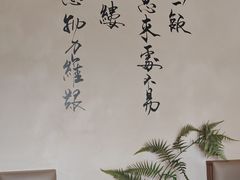 一飯
思來處不易
縷
念物力維艱